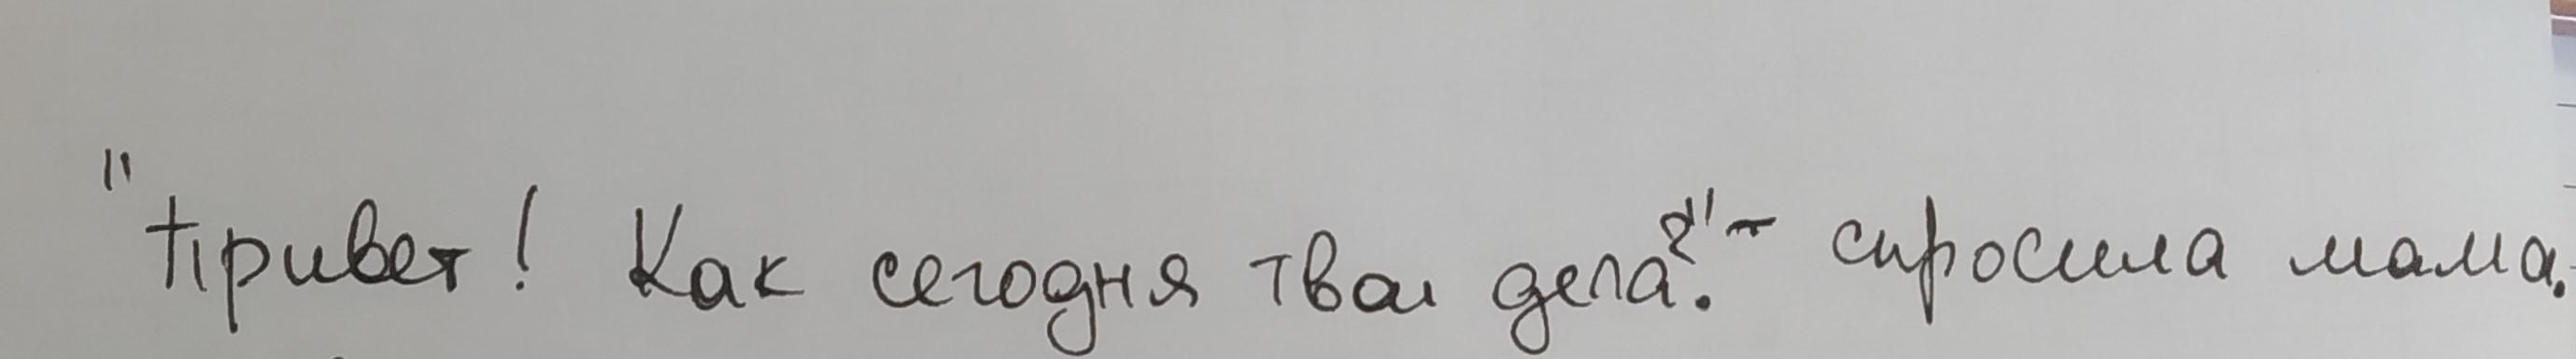 "Привет! Как сегодня твои дела?" - спросила мама.